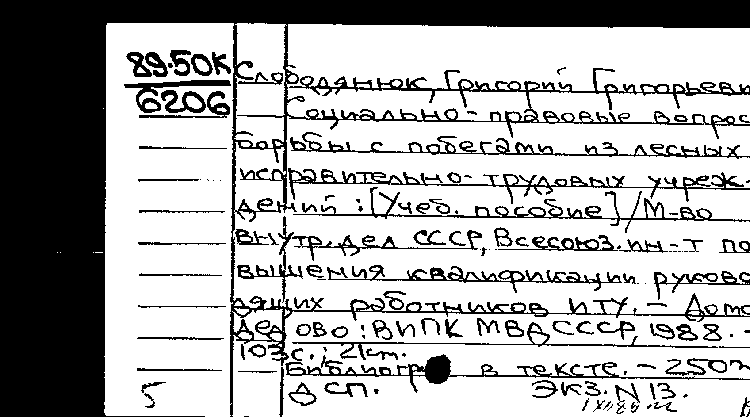 89-50К Слободянюк, Григорий Григорьеви
6206 Социально-правовые вопрос
борьбы с побегами из лесных
исправительно-трудовых учреж-
дений : [Учеб. пособие] / М-во
внутр. дел СССР, Всесоюз. ин-т по
вышения квалификации руково
дящих работников ИТУ. - Домо
дедово : ВИПК МВД СССР, 1988. -
103 с. ; 21 cm.
Библиогр в тексте. - 250
5 ДСП. ЭКЗ. N 13.